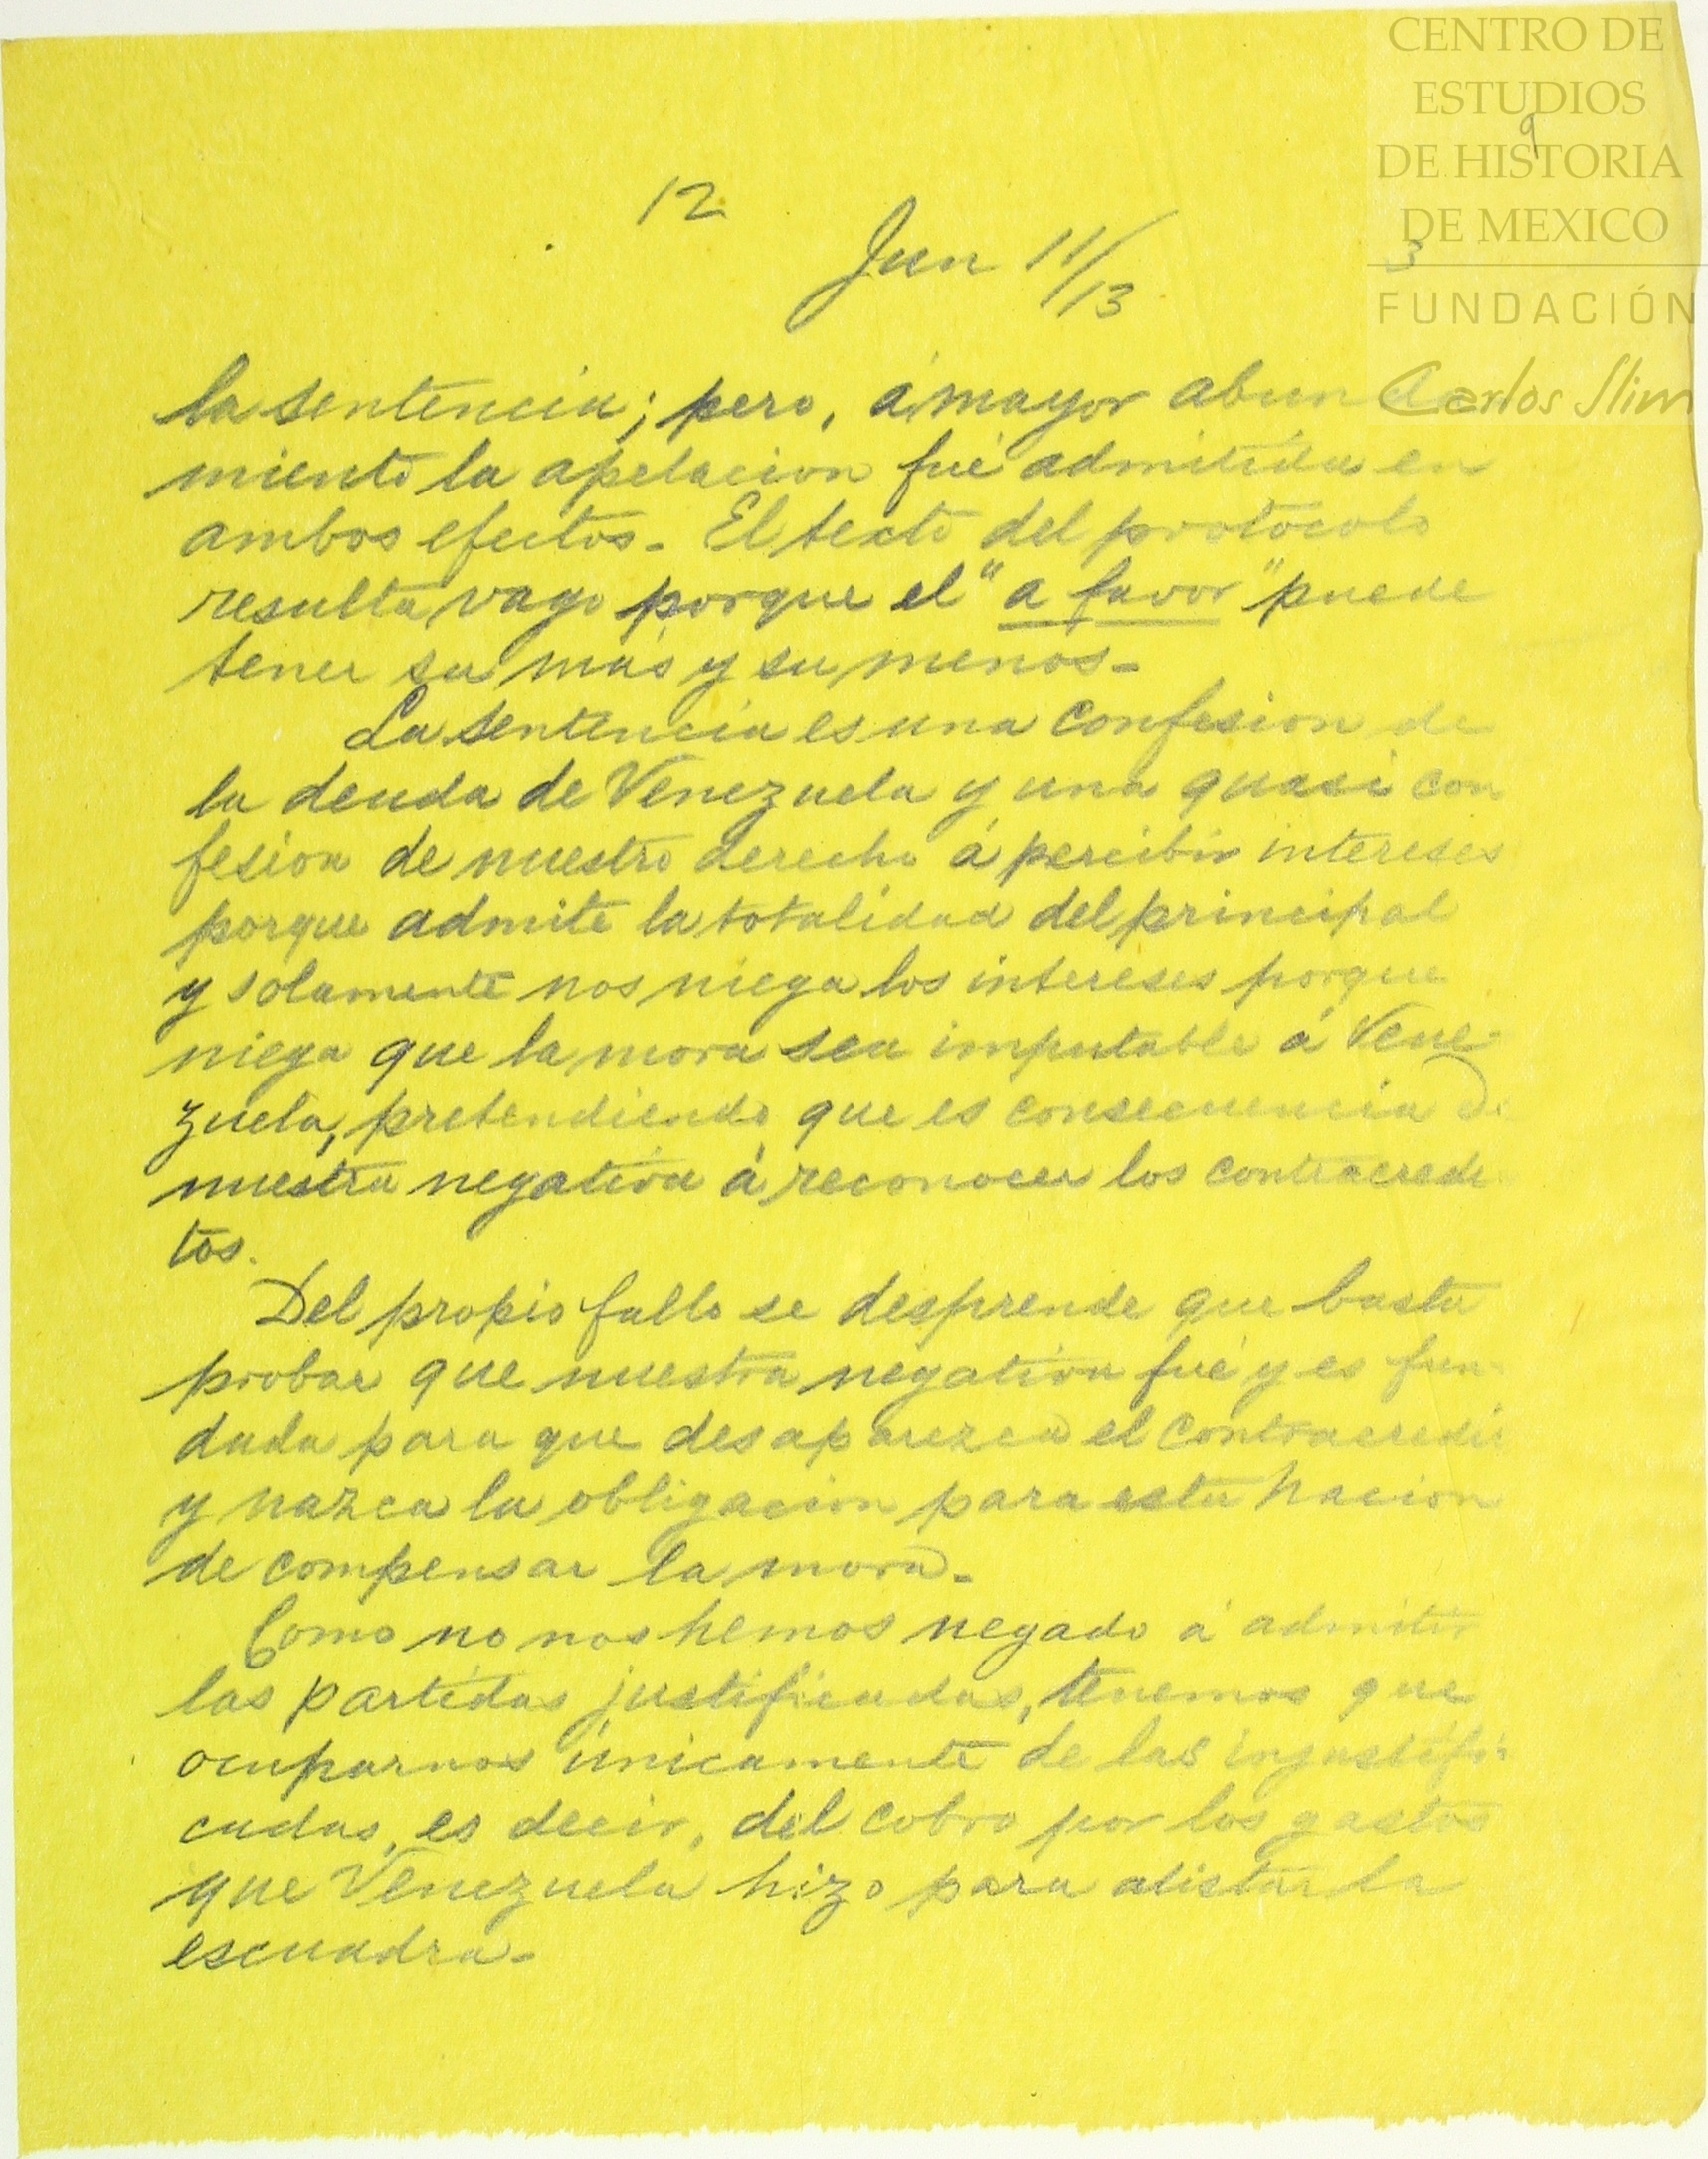 CENTRO DE
ESTUDIOS
DE HISTORIA
DE MEXICO
FUNDACIÓN
Carlos Slim
9
12
3
Jun 11/13
la sentencia; pero, á mayor abunda
miento la apelacion fué admitida en
ambos efectos. El texto del protocolo
resulta vago porque el "a favor" puede
tener su más y su menos.
La sentencia es una confesion de
la deuda de Venezuela y una quasi con
fesion de nuestro derecho á percibir intereses
porque admite la totalidad del principal
y solamente nos niega los intereses porque
niega que la mora sea imputable á Vene-
zuela, pretendiendo que es consecuencia de
nuestra negativa á reconocer los contracredi
tos.
Del propio fallo se desprende que basta
probar que nuestra negativa fué y es fun-
dada para que desaparezca el contracredito
y nazca la obligacion para esta nacion
de compensar la mora.
Como no nos hemos negado á admitir
las partidas justificadas, tenemos que
ocuparnos únicamente de las injustifi-
cadas, es decir, del cobro por los gastos
que Venezuela hizo para alistar la
escuadra.